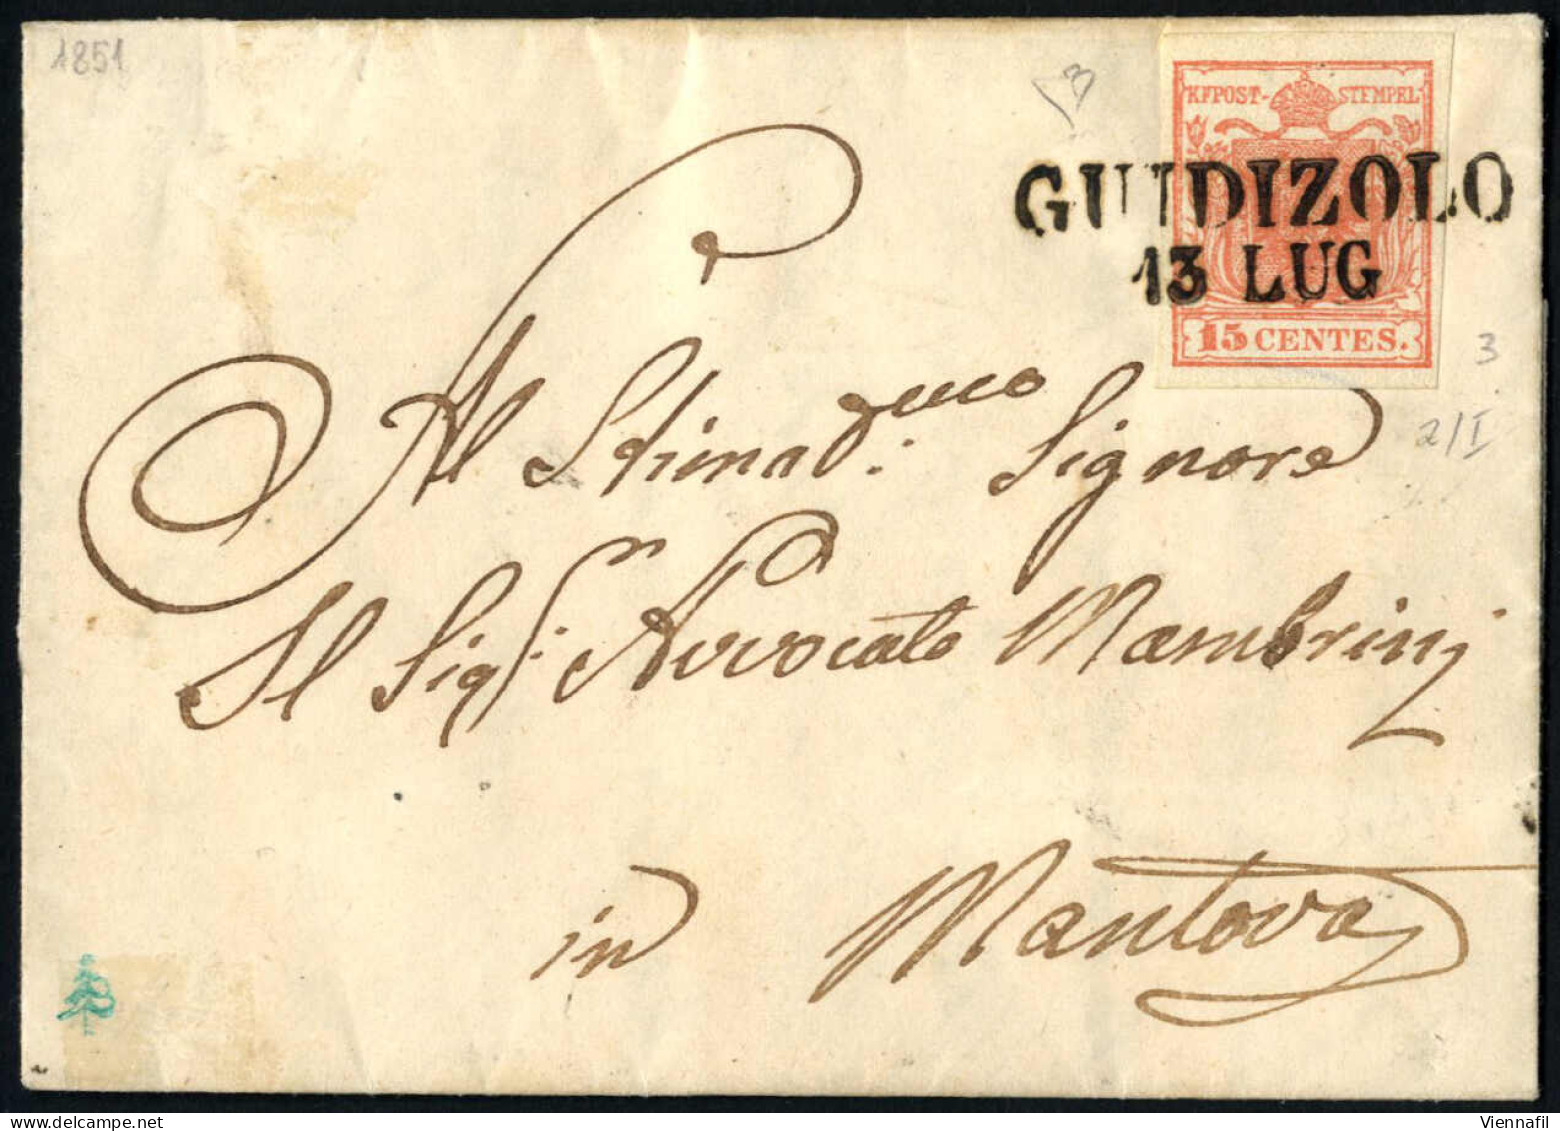 1851
KK POST-STEMPEL
GUIDIZOLO
13 LUG
15 CENTES.
3
2/I
Al Stimad.mo Signore
Il Sig.r Avvocato Mambrini
in Mantova
Viennafil